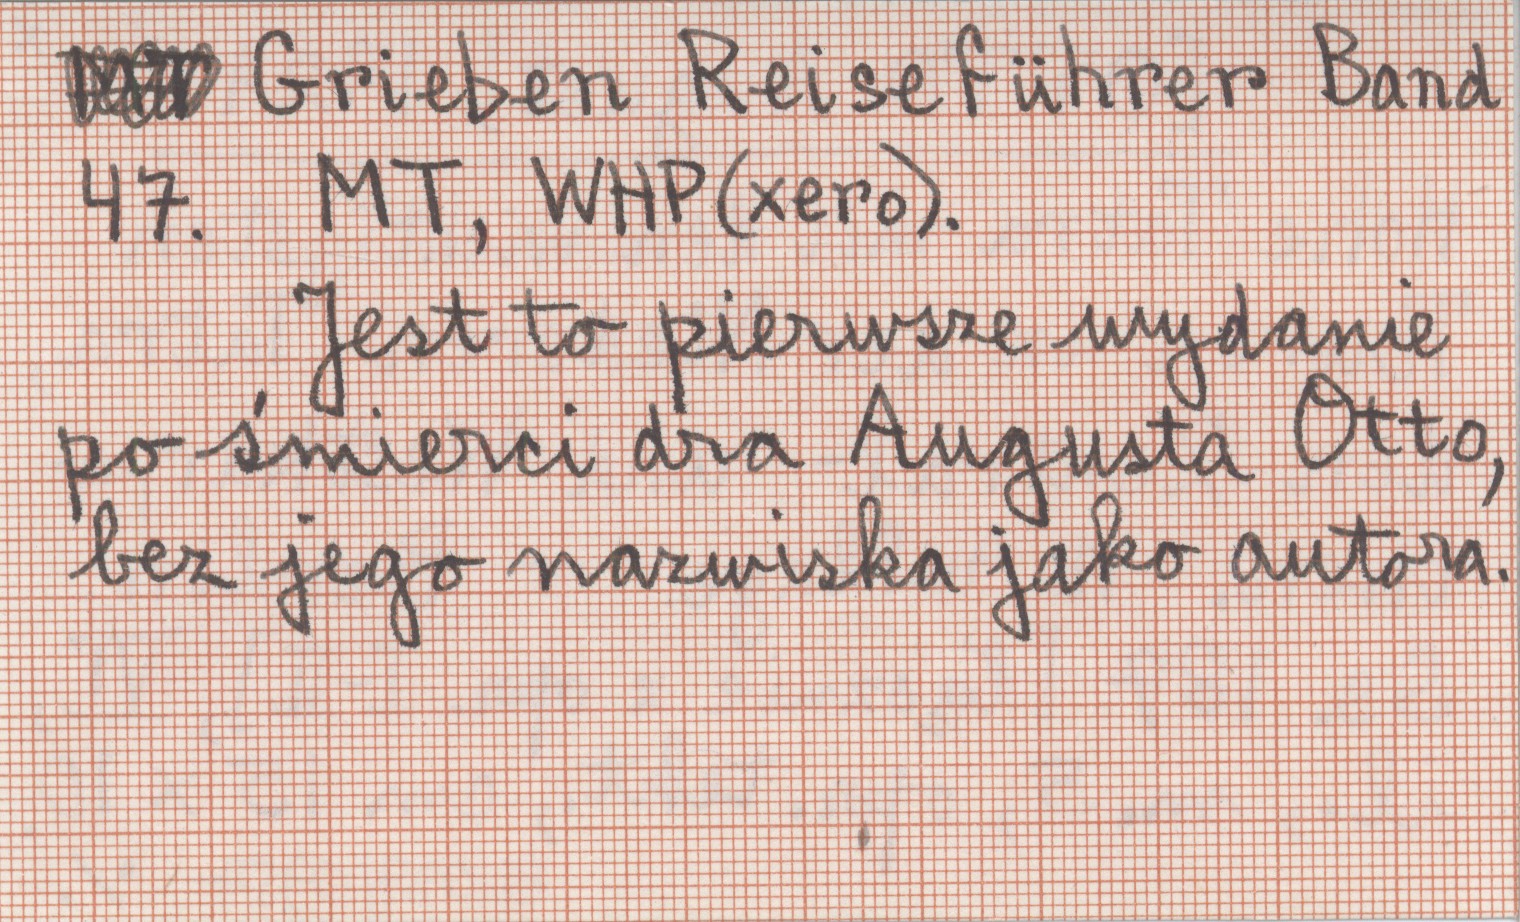 Grieben Reiseführer Band
47. MT, WHP (xero).
Jest to pierwsze wydanie
po śmierci dra Augusta Otto,
bez jego nazwiska jako autora.